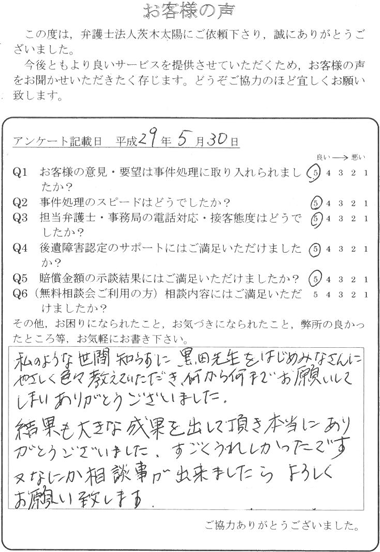 お客様の声
この度は，弁護士法人茨木太陽にご依頼下さり，誠にありがとうご
ざいました。
今後ともより良いサービスを提供させていただくため，お客様の声
をお聞かせいただきたく存じます。どうぞご協力のほど宜しくお願い
致します。
アンケート記載日 平成29年5月30日
良い→悪い
Q1 お客様の意見・要望は事件処理に取り入れられまし 5 4 3 2 1
たか？
Q2 事件処理のスピードはどうでしたか？ 5 4 3 2 1
Q3 担当弁護士・事務局の電話対応・接客態度はどうで 5 4 3 2 1
したか？
Q4 後遺障害認定のサポートにはご満足いただけました 5 4 3 2 1
か？
Q5 賠償金額の示談結果にはご満足いただけましたか？ 5 4 3 2 1
Q6（無料相談会ご利用の方）相談内容にはご満足いただ 5 4 3 2 1
けましたか？
その他，お困りになられたこと，お気づきになられたこと，弊所の良かっ
たところ等，お気軽にお書き下さい。
私のような世間知らずに 黒田先生をはじめみなさんに
やさしく色々教えていただき、何から何までお願いして
しまいありがとうございました。
結果も大きな成果を出して頂き本当にあり
がとうございました。すごくうれしかったです
又なにか相談事が出来ましたら よろしく
お願い致します。
ご協力ありがとうございました。